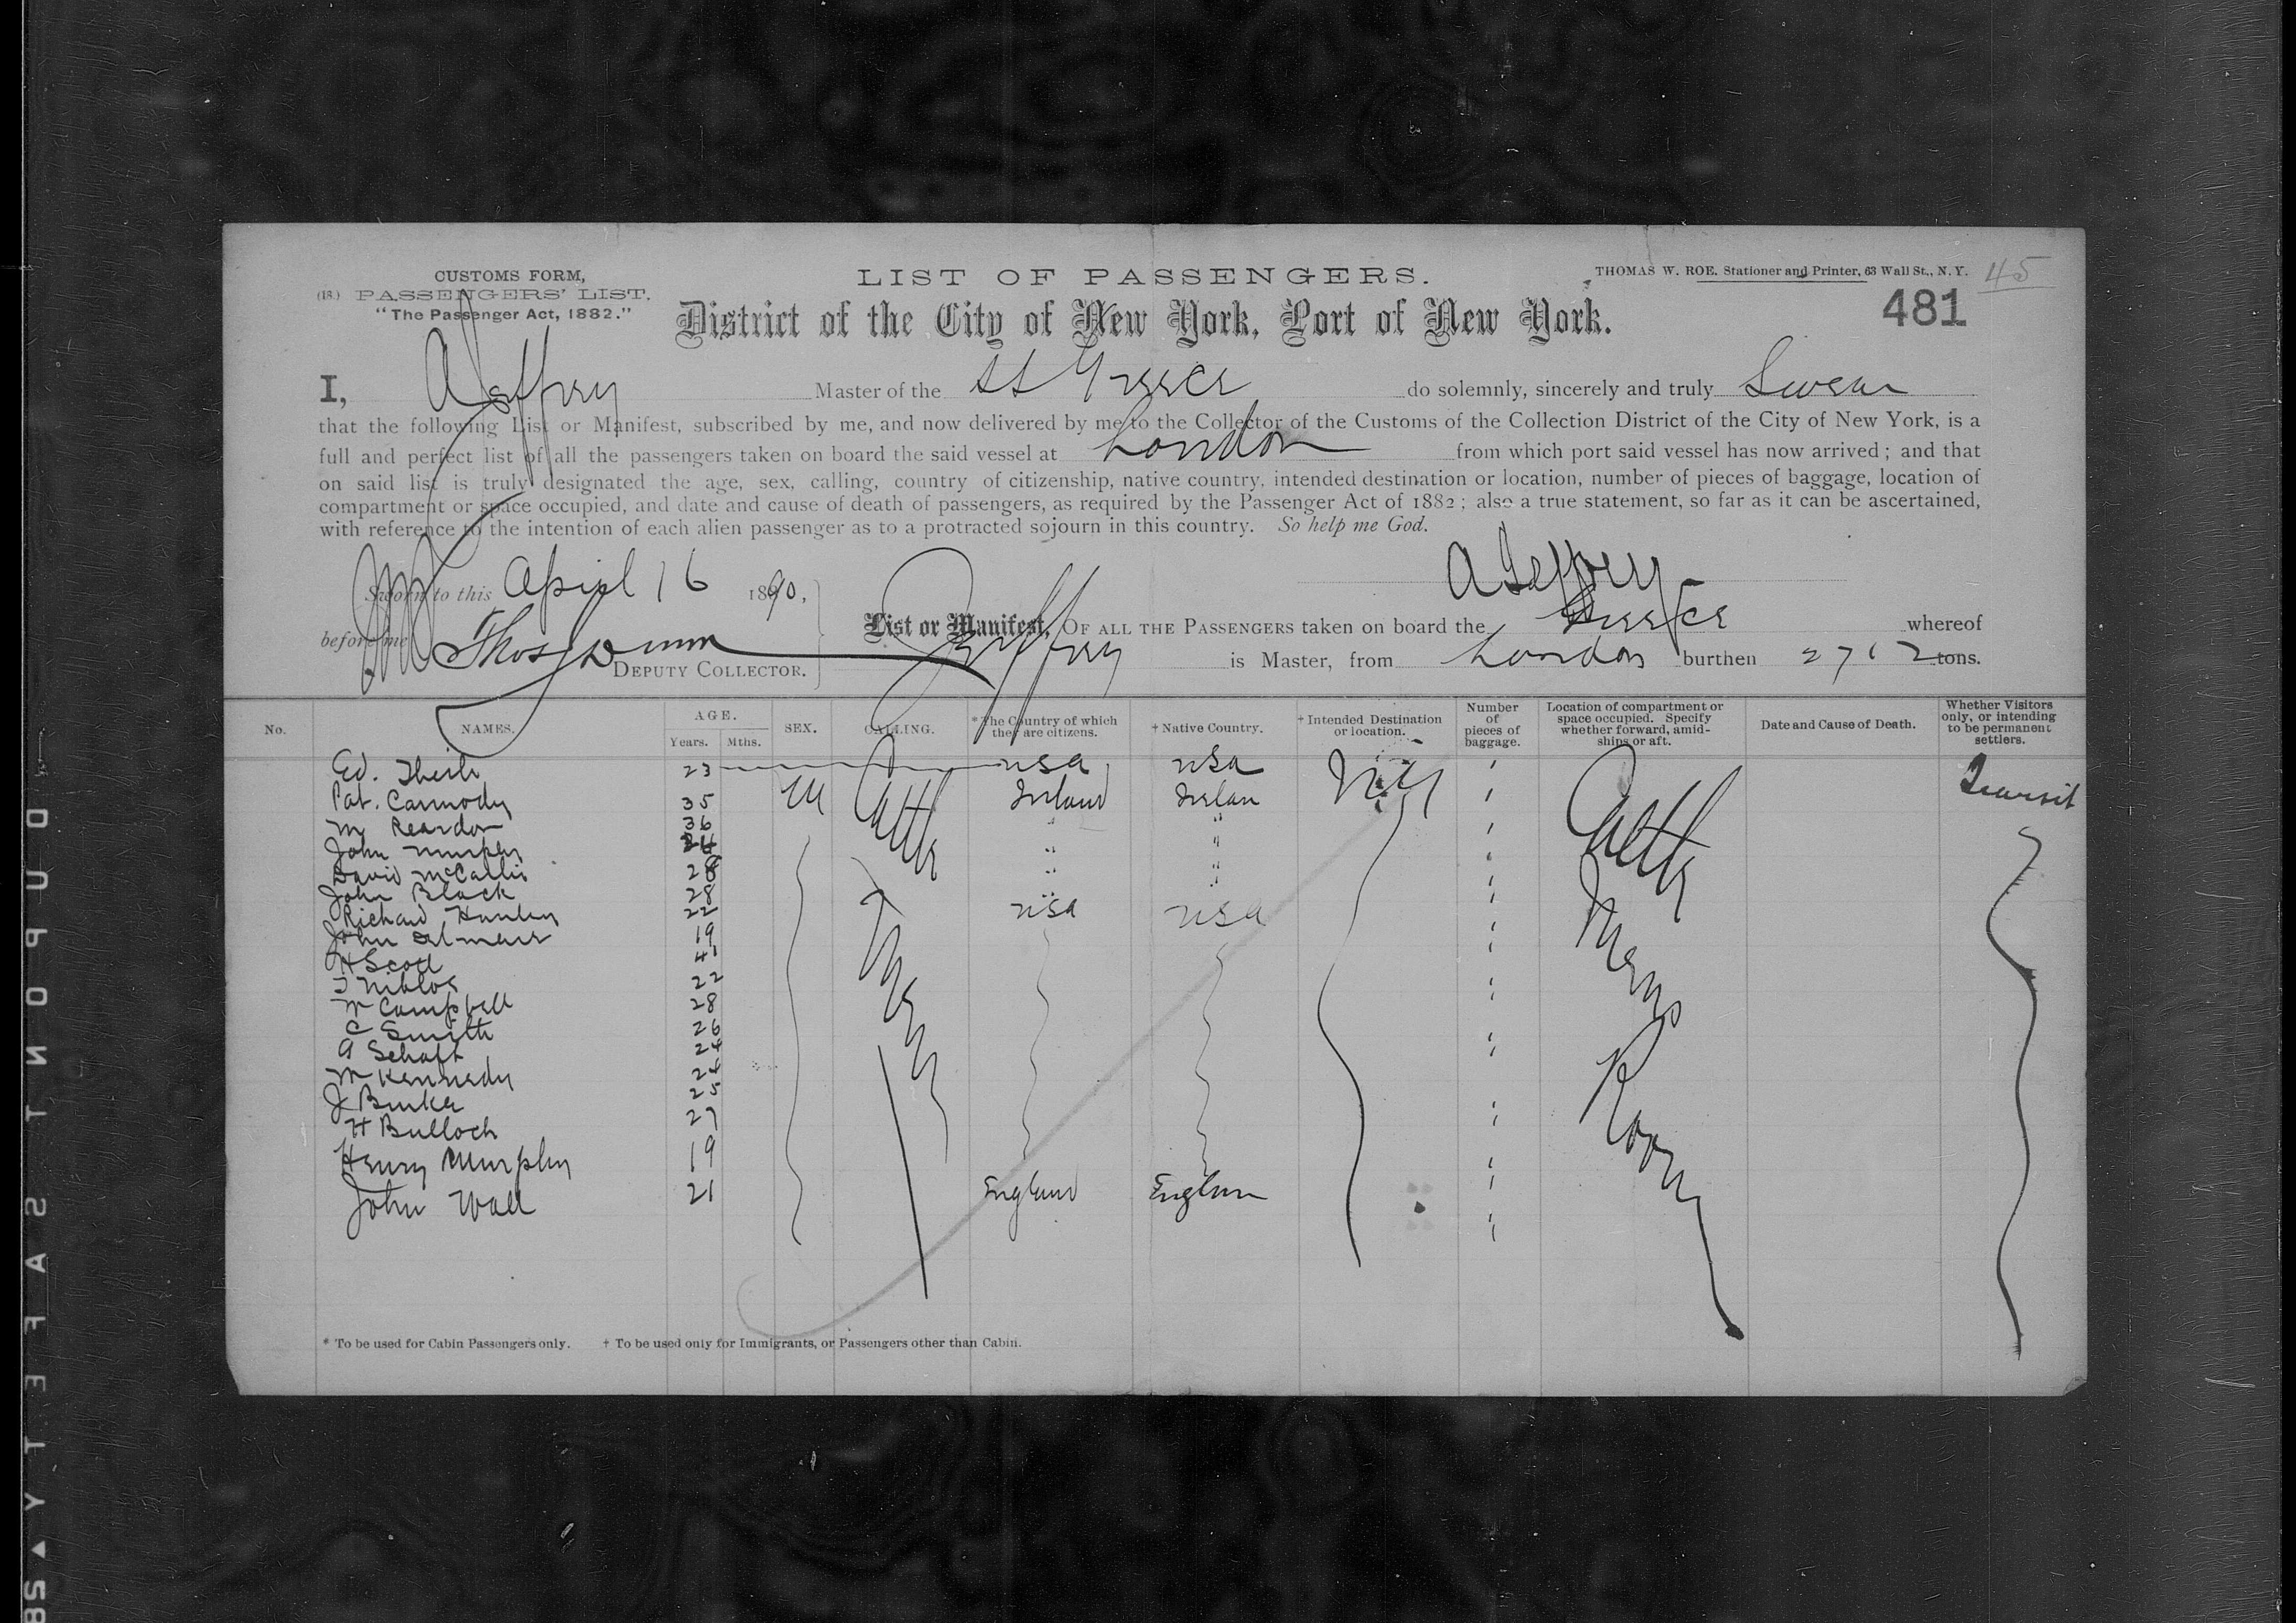 CUSTOMS FORM,
(18.) PASSENGERS' LIST.
"The Passenger Act, 1882."
LIST OF PASSENGERS.
THOMAS W. ROE, Stationer and Printer, 63 Wall St., N.Y.
45
481
District of the City of New York, Port of New York.
I, A Jeffrey Master of the SS Greece do solemnly, sincerely and truly Swear
that the following List or Manifest, subscribed by me, and now delivered by me to the Collector of the Customs of the Collection District of the City of New York, is a
full and perfect list of all the passengers taken on board the said vessel at London from which port said vessel has now arrived; and that
on said list is truly designated the age, sex, calling, country of citizenship, native country, intended destination or location, number of pieces of baggage, location of
compartment or space occupied, and date and cause of death of passengers, as required by the Passenger Act of 1882; also a true statement, so far as it can be ascertained,
with reference to the intention of each alien passenger as to a protracted sojourn in this country. So help me God.
A Jeffrey
Sworn to this April 16 1890,
before me Thos Dunn
DEPUTY COLLECTOR.
List or Manifest, OF ALL THE PASSENGERS taken on board the Greece whereof
Jeffrey is Master, from London burthen 2712 tons.
No. NAMES. AGE. Years. Mths. SEX. CALLING. * The Country of which they are citizens. † Native Country. † Intended Destination or location. Number of pieces of baggage. Location of compartment or space occupied. Specify whether forward, amidships or aft. Date and Cause of Death. Whether Visitors only, or intending to be permanent settlers.
Ed. 23 M Cattle Men USA USA NY 1 Cattle Mens Room Transit
Pat. Carmody 35 Ireland Irelan 1
M Reardon 36 " " 1
John 24 " " 1
David 28 " " 1
John Black 28 1
Richard 22 USA USA
John 19
H Scott 41
22
W Campbell 28
C Smith 26
A Schaft 24
M Kennedy 24
J Burke 25
H Bulloch 27
Henry Murphy 19
John Wall 21 England Englan
* To be used for Cabin Passengers only. † To be used only for Immigrants, or Passengers other than Cabin.
DUPONT SAFETY